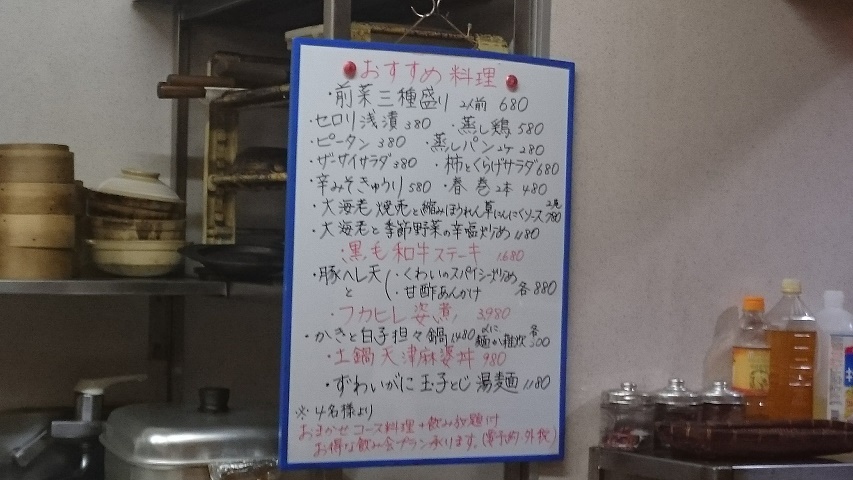 おすすめ料理
・前菜三種盛り 2人前 680
・セロリ浅漬 380 ・蒸し鶏 580
・ピータン 380 ・蒸しパン 2ケ 280
・ザーサイサラダ 380 ・柿とくらげサラダ 680
・辛みそきゅうり 580 ・春巻 2本 480
・大海老焼売と縮みほうれん草にんにくソース 2尾 780
・大海老と季節野菜の辛塩炒め 1180
・黒毛和牛ステーキ 1,680
・豚ヘレ天と(・くわいのスパイシー炒め
・甘酢あんかけ 各880
・フカヒレ姿煮 3,980
・かきと白子担々鍋 1480 〆に麺か雑炊 各300
・土鍋天津麻婆丼 980
・ずわいがに玉子とじ湯麺 1180
※4名様より
おまかせコース料理+飲み放題付
お得な飲み会プラン承ります。(要予約・外税)